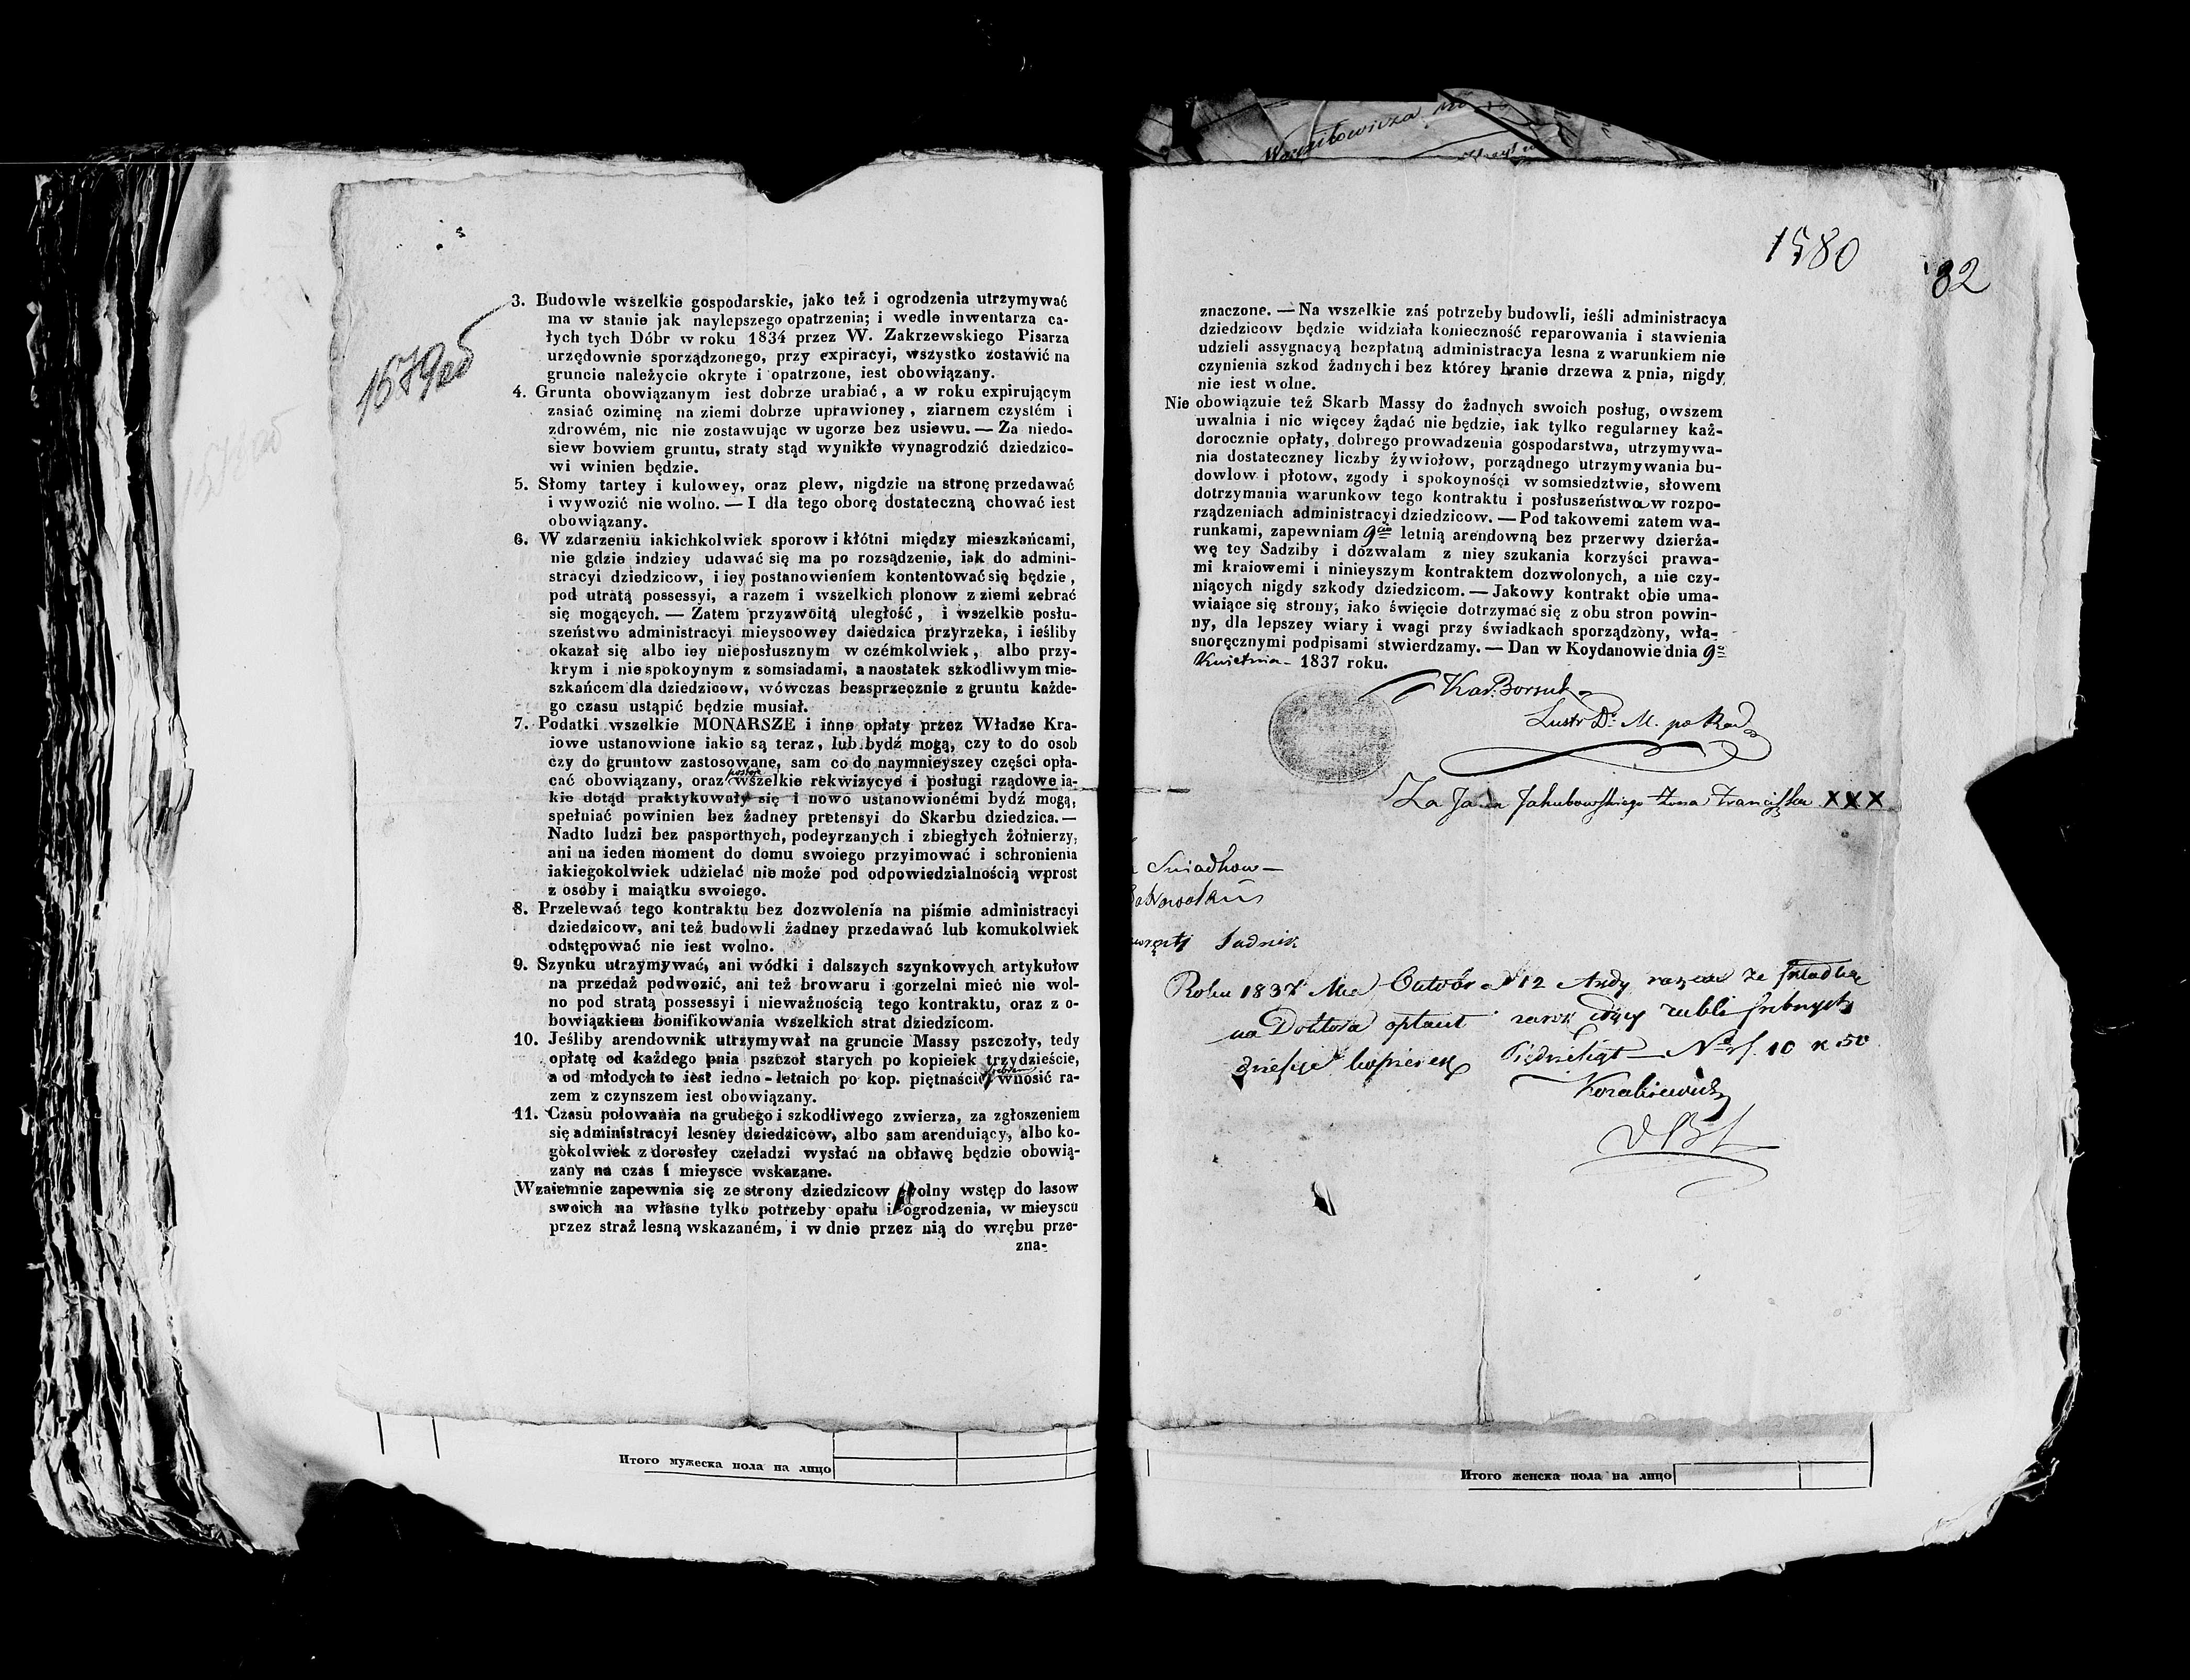 1579об
3. Budowle wszelkie gospodarskie, jako też i ogrodzenia utrzymywać
ma w stanie jak naylepszego opatrzenia; i wedle inwentarza ca-
łych tych Dóbr w roku 1834 przez W. Zakrzewskiego Pisarza
urzędownie sporządzonego, przy expiracyi, wszystko zostawić na
gruncie należycie okryte i opatrzone, iest obowiązany.
4. Grunta obowiązanym iest dobrze urabiać, a w roku expirującym
zasiać oziminę na ziemi dobrze uprawioney, ziarnem czystém i
zdrowém, nic nie zostawując w ugorze bez usiewu. — Za niedo-
siew bowiem gruntu, straty stąd wynikłe wynagrodzić dziedzico-
wi winien będzie.
5. Słomy tartey i kulowey, oraz plew, nigdzie na stronę przedawać
i wywozić nie wolno. — I dla tego oborę dostateczną chować iest
obowiązany.
6. W zdarzeniu iakichkolwiek sporow i kłótni między mieszkańcami,
nie gdzie indziey udawać się ma po rozsądzenie, iak do admini-
stracyi dziedzicow, i iey postanowieniem kontentować się będzie,
pod utratą possessyi, a razem i wszelkich plonow z ziemi zebrać
się mogących. — Zatem przyzwoitą uległość, i wszelkie posłu-
szeństwo administracyi mieyscowey dziedzica przyrzeka, i ieśliby
okazał się albo iey nieposłusznym w czémkolwiek, albo przy-
krym i niespokoynym z somsiadami, a naostatek szkodliwym mie-
szkańcem dla dziedzicow, wówczas bezsprzecznie z gruntu każde-
go czasu ustąpić będzie musiał.
7. Podatki wszelkie MONARSZE i inne opłaty przez Władze Kra-
iowe ustanowione iakie są teraz, lub bydź mogą, czy to do osob
czy do gruntow zastosowane, sam co do naymnieyszey części opła-
cać obowiązany, oraz wszelkie rekwizycye i posługi rządowe ia-
kie dotąd praktykowały się i nowo ustanowionémi bydź mogą,
spełniać powinien bez żadney pretensyi do Skarbu dziedzica. —
Nadto ludzi bez pasportnych, podeyrzanych i zbiegłych żołnierzy,
ani na ieden moment do domu swoiego przyimować i schronienia
iakiegokolwiek udzielać nie może pod odpowiedzialnością wprost
z osoby i maiątku swoiego.
8. Przelewać tego kontraktu bez dozwolenia na piśmie administracyi
dziedzicow, ani też budowli żadney przedawać lub komukolwiek
odstępować nie iest wolno.
9. Szynku utrzymywać, ani wódki i dalszych szynkowych artykułow
na przedaż podwozić, ani też browaru i gorzelni mieć nie wol-
no pod stratą possessyi i nieważnością tego kontraktu, oraz z o-
bowiązkiem bonifikowania wszelkich strat dziedzicom.
10. Jeśliby arendownik utrzymywał na gruncie Massy pszczoły, tedy
opłatę od każdego pnia pszczoł starych po kopieiek trzydzieście,
a od młodych to iest iedno-letnich po kop. piętnaście srebrem wnosić ra-
zem z czynszem iest obowiązany.
11. Czasu polowania na grubego i szkodliwego zwierza, za zgłoszeniem
się administracyi lesney dziedziców, albo sam arenduiący, albo ko-
gokolwiek z dorosłey czeladzi wysłać na obławę będzie obowią-
zany na czas i mieysce wskazane.
Wzaiemnie zapewnia się ze strony dziedzicow wolny wstęp do lasow
swoich na własne tylko potrzeby opału i ogrodzenia, w mieyscu
przez straż lesną wskazaném, i w dnie przez nią do wrębu prze-
zna-
Итого мужеска пола на лицо
1580
82
znaczone. — Na wszelkie zaś potrzeby budowli, ieśli administracya
dziedzicow będzie widziała konieczność reparowania i stawienia
udzieli assygnacyą bezpłatną administracya lesna z warunkiem nie
czynienia szkod żadnych i bez którey branie drzewa z pnia, nigdy
nie iest wolne.
Nie obowiązuie też Skarb Massy do żadnych swoich posług, owszem
uwalnia i nic więcey żądać nie będzie, iak tylko regularney każ-
dorocznie opłaty, dobrego prowadzenia gospodarstwa, utrzymywa-
nia dostateczney liczby żywiołow, porządnego utrzymywania bu-
dowlow i płotow, zgody i spokoyności w somsiedztwie, słowem
dotrzymania warunkow tego kontraktu i posłuszeństwa w rozpo-
rządzeniach administracyi dziedzicow. — Pod takowemi zatem wa-
runkami, zapewniam 9cio letnią arendowną bez przerwy dzierża-
wę tey Sadziby i dozwalam z niey szukania korzyści prawa-
mi kraiowemi i ninieyszym kontraktem dozwolonych, a nie czy-
niących nigdy szkody dziedzicom. — Jakowy kontrakt obie uma-
wiaiące się strony, iako święcie dotrzymać się z obu stron powin-
ny, dla lepszey wiary i wagi przy świadkach sporządzony, wła-
snoręcznymi podpisami stwierdzamy. — Dan w Koydanowie dnia 9o
Kwietnia - 1837 roku.
Kar. Borsuk
Lustr D. M. po
Za Jana Jakubowskiego Żona Franciszka XXX
Swiadkow —
Sadnik
Roku 1837 Mca 12 razem ze składką
na Doktora rubli srebnych
dziesięć kopieiek Piędziesiąt — No rs. 10 k 50
Итого женска пола на лицо